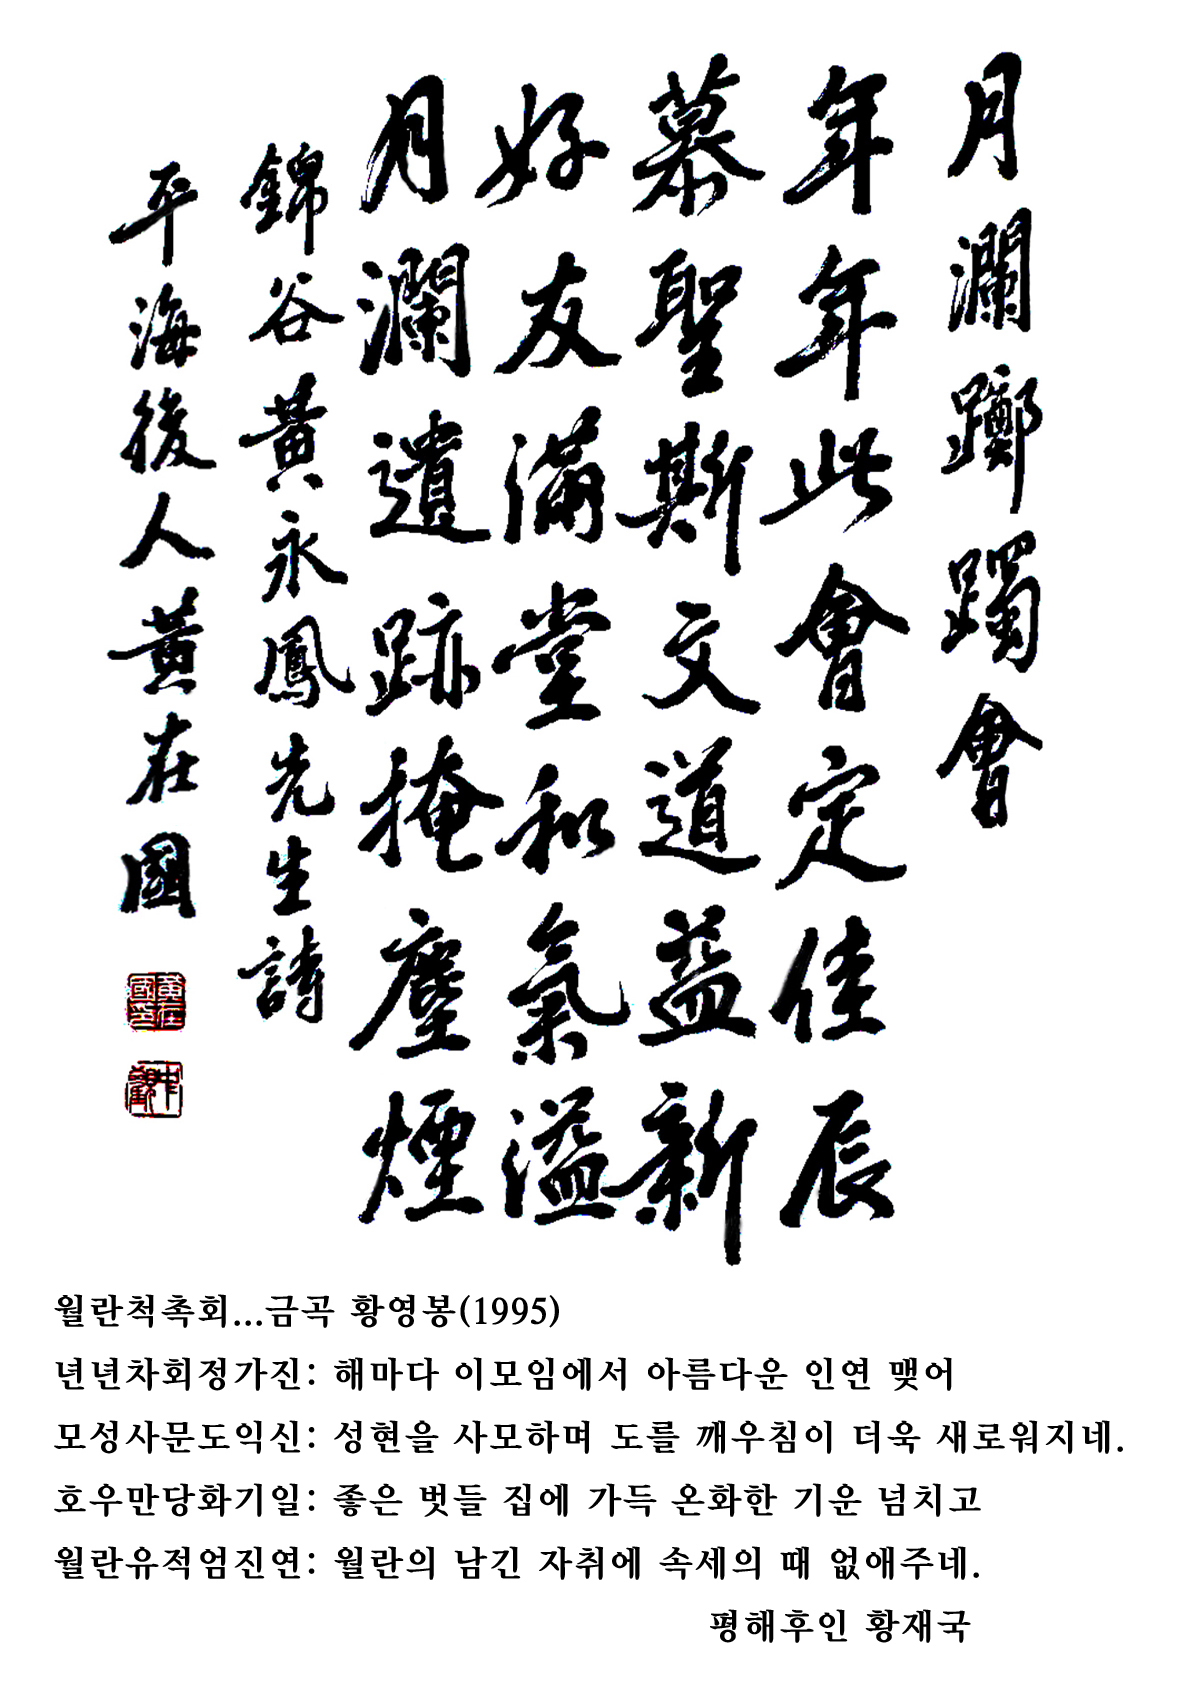 月瀾躑躅會
年年此會定佳辰
慕聖斯文道益新
好友滿堂和氣溢
月瀾遺跡掩塵煙
錦谷黃永鳳先生詩
平海後人黃在國
월란척촉회...금곡 황영봉(1995)
년년차회정가진: 해마다 이모임에서 아름다운 인연 맺어
모성사문도익신: 성현을 사모하며 도를 깨우침이 더욱 새로워지네.
호우만당화기일: 좋은 벗들 집에 가득 온화한 기운 넘치고
월란유적엄진연: 월란의 남긴 자취에 속세의 때 없애주네.
평해후인 황재국